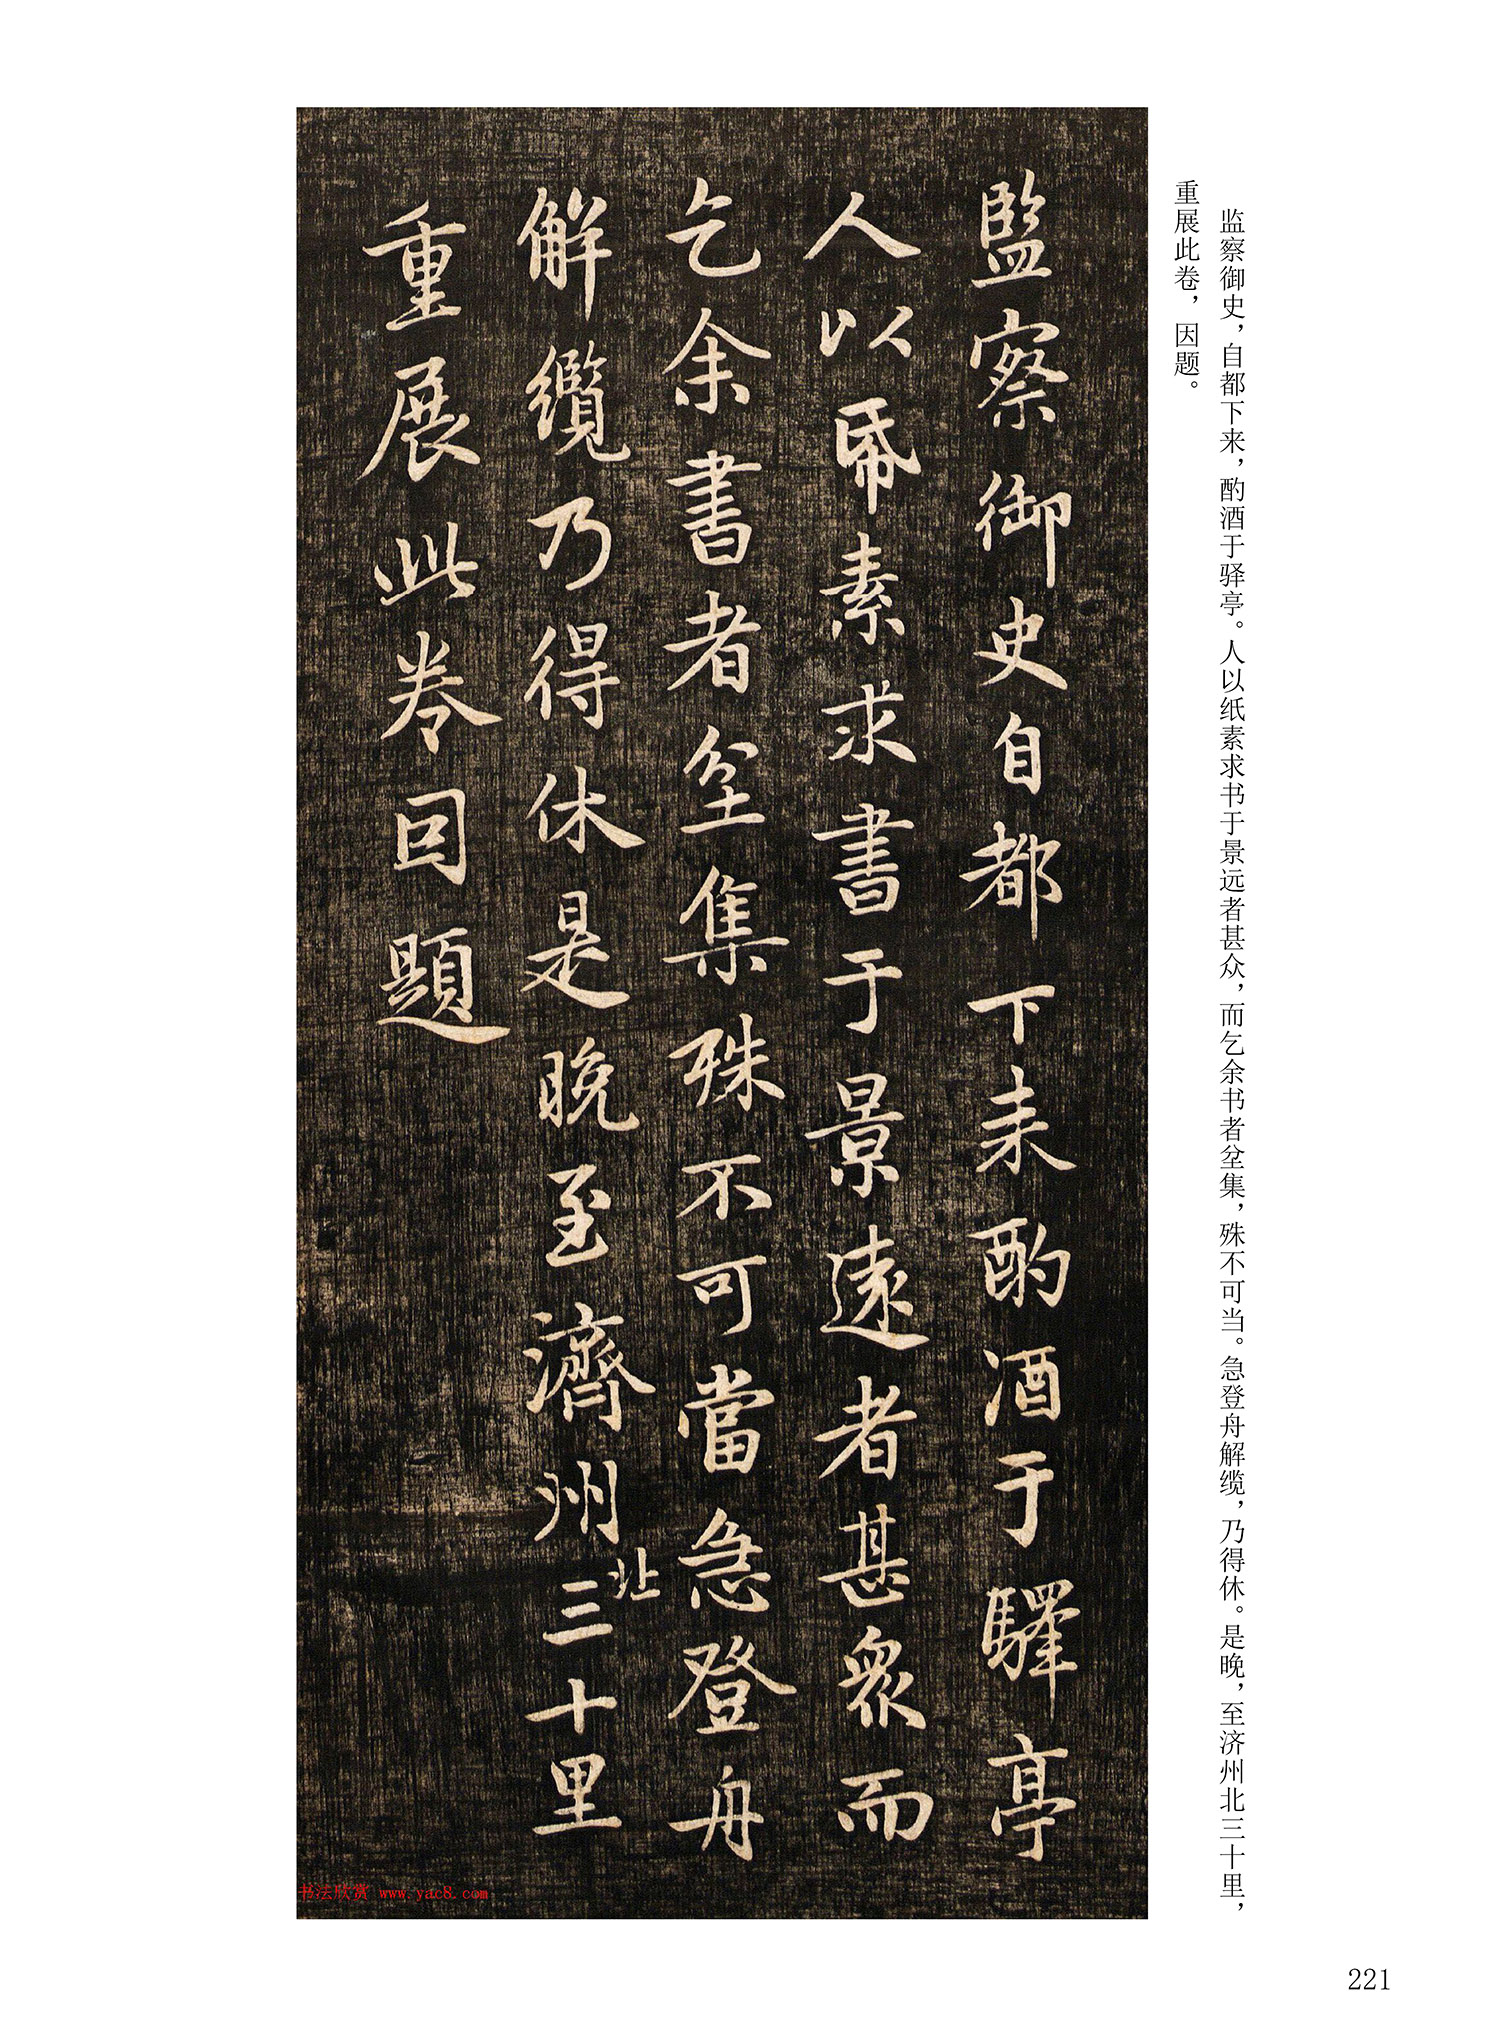 监察御史，自都下来，酌酒于驿亭。人以纸素求书于景远者甚众，而乞余书者坌集，殊不可当。急登舟解缆，乃得休。是晚，至济州北三十里，
重展此卷，因题。
監察御史自都下来酌酒于驛亭
人以帋素求書于景遠者甚衆而
乞余書者坌集殊不可當急登舟
解纜乃得休是晚至濟州北三十里
重展此卷因題
书法欣赏 www.yac8.com
221